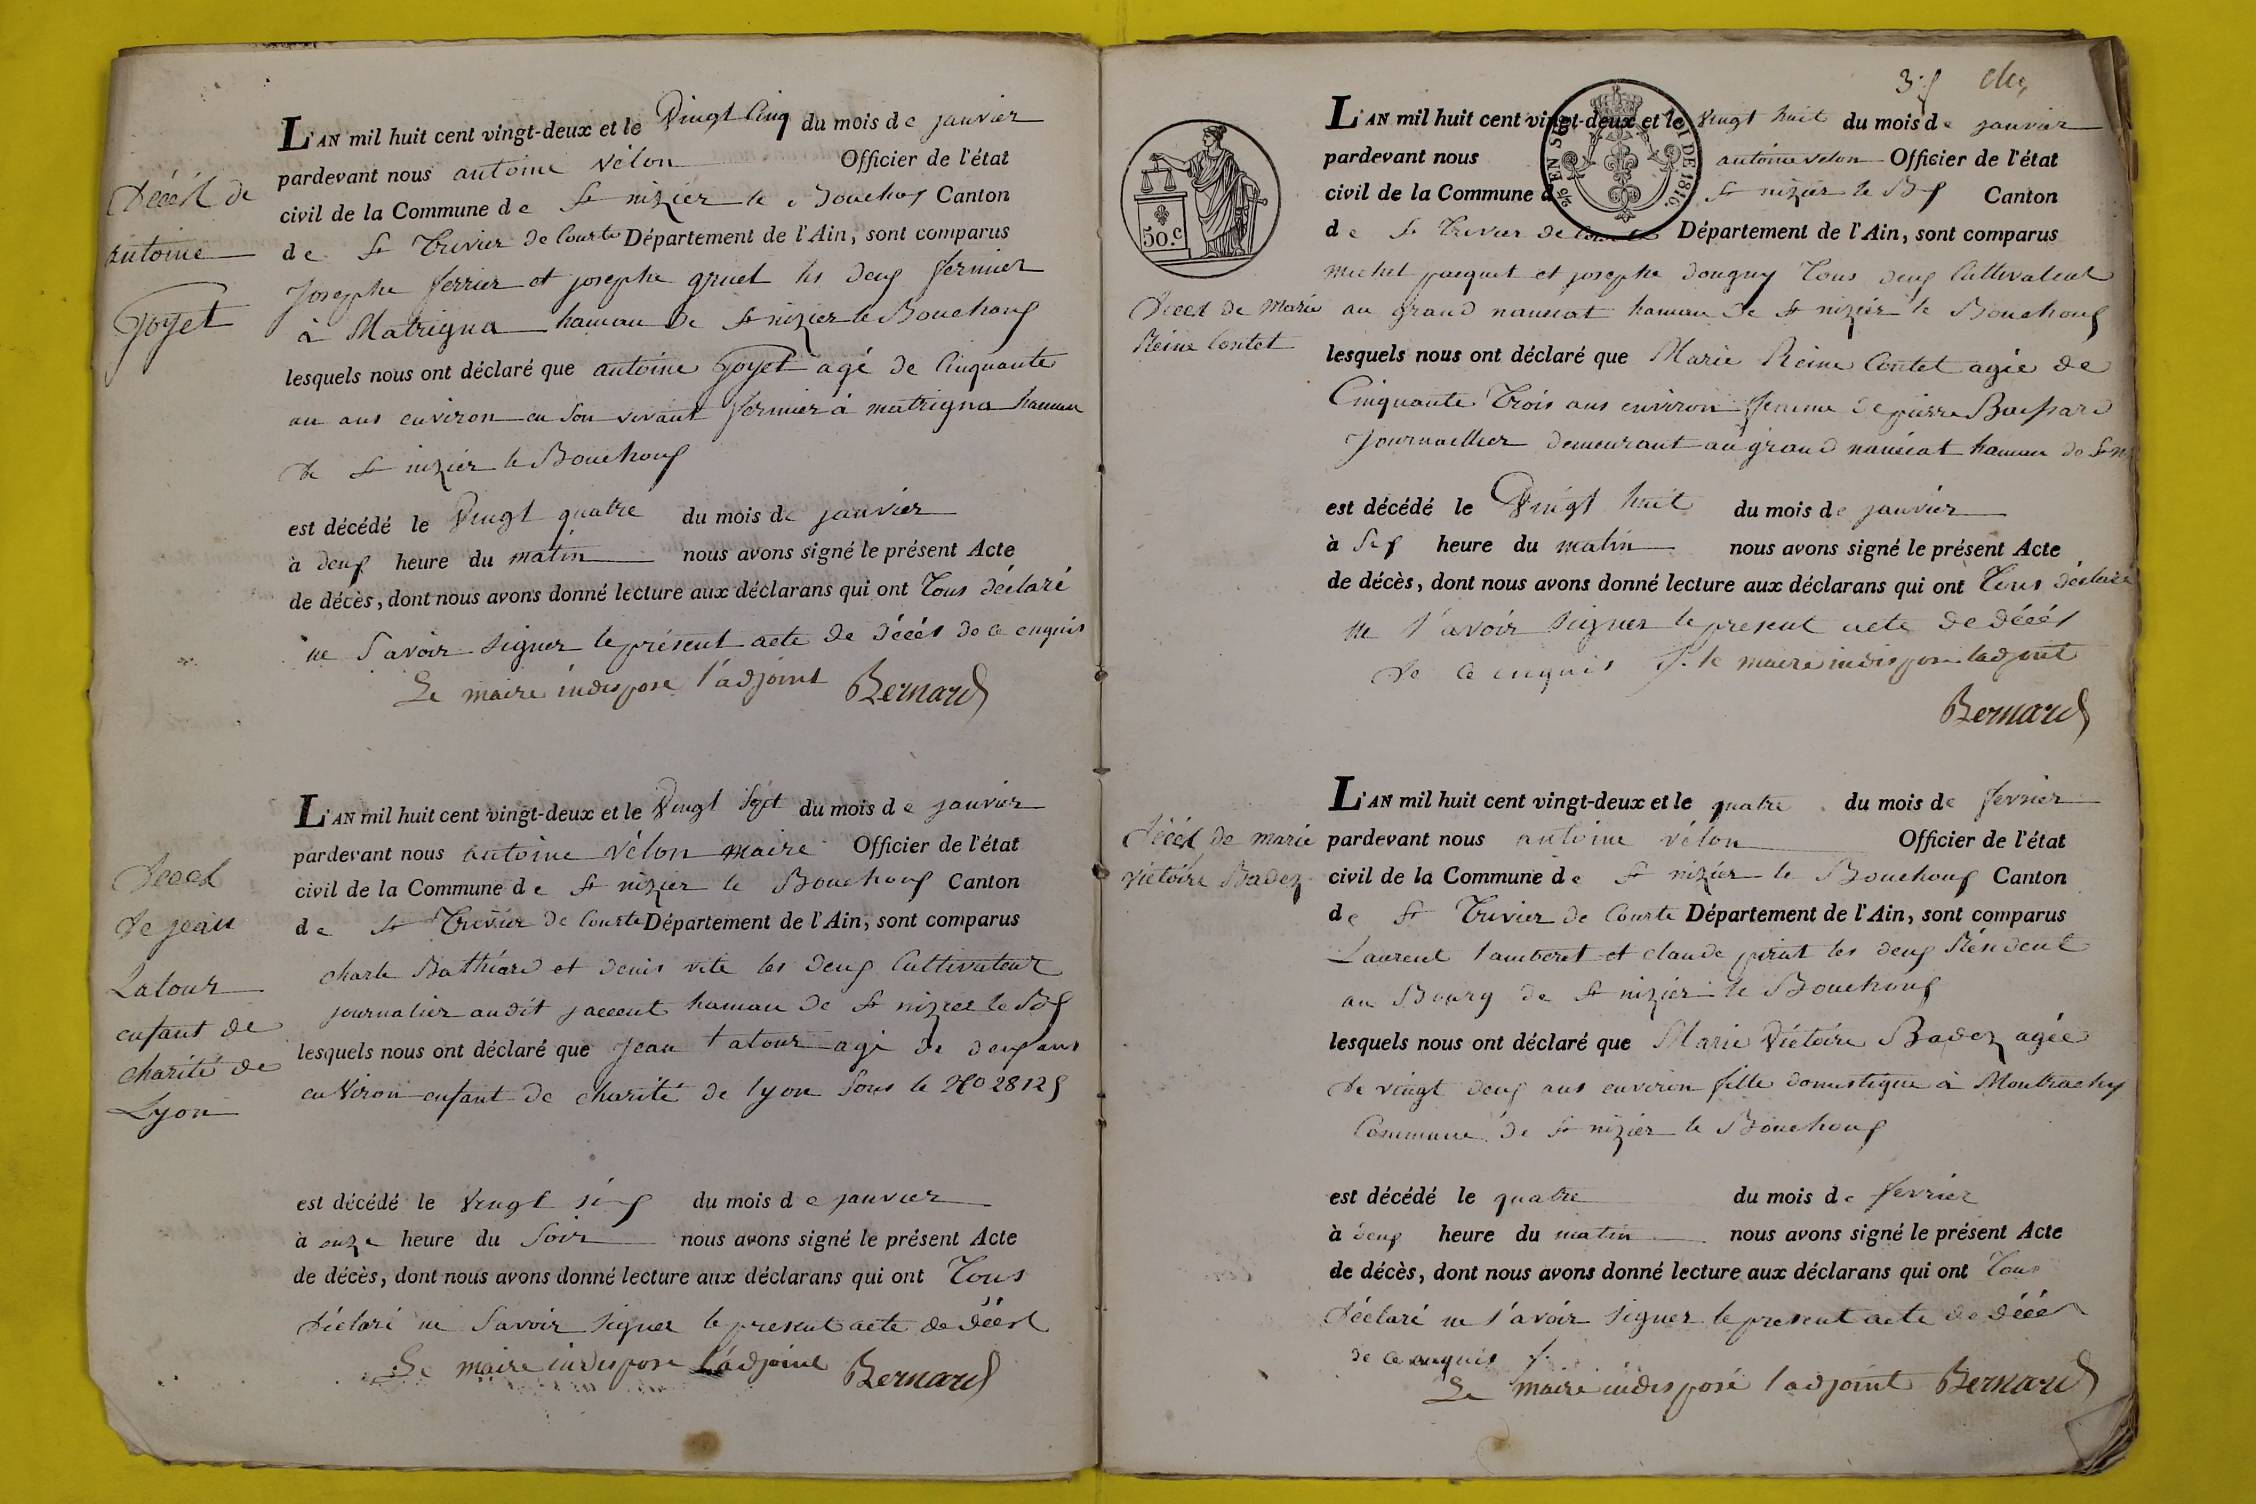 Décès de
antoine
Joyet
L'AN mil huit cent vingt-deux et le Vingt Cinq du mois de janvier
pardevant nous antoine vélon Officier de l'état
civil de la Commune de St nizier le Bouchoux Canton
de St Trivier de Courte Département de l'Ain, sont comparus
Josephe ferrier et josephe gruel les deux fermier
à Matrigna hamau de St nizier le Bouchoux
lesquels nous ont déclaré que antoine Joyet agé de Cinquante
un ans environ en Son vivant fermier à matrigna hamau
de St nizier le Bouchoux
est décédé le Vingt quatre du mois de janvier
à deux heure du matin nous avons signé le présent Acte
de décès, dont nous avons donné lecture aux déclarans qui ont Tous déclaré
ne Savoir signer le présent acte de décès de ce enquis
Le maire indisposé l'adjoint Bernard
Décès
de jean
Latour
enfant de
charité de
Lyon
L'AN mil huit cent vingt-deux et le Vingt Sept du mois de janvier
pardevant nous antoine vélon maire Officier de l'état
civil de la Commune de St nizier le Bouchoux Canton
de St Trivier de Courte Département de l'Ain, sont comparus
charle Bathiard et denis vite les deux Cultivateur
journalier audit hamau de St nizier le Bx
lesquels nous ont déclaré que jean latour agé de deux ans
environ enfant de charité de lyon Sous le No
est décédé le vingt du mois de janvier
à onze heure du Soir nous avons signé le présent Acte
de décès, dont nous avons donné lecture aux déclarans qui ont Tous
déclaré ne Savoir signer le present acte de décès
Le maire indisposé l'adjoint Bernard
50.c
LOI DE 1816.
EN SUS
Décès de Marie
Reine Contet
L'AN mil huit cent vingt-deux et le vingt huit du mois de janvier
pardevant nous antoine vélon Officier de l'état
civil de la Commune d St nizier le Bx Canton
de St Trivier de Département de l'Ain, sont comparus
michel jacquet et josephe dougny Tous deux Cultivateur
au grand nansiat hamau de St nizier le Bouchoux
lesquels nous ont déclaré que Marie Reine Contet agée de
Cinquante Trois ans environ femme de pierre Buffard
journallier demeurant au grand nansiat hamau de St
est décédé le Vingt huit du mois de janvier
à heure du matin nous avons signé le présent Acte
de décès, dont nous avons donné lecture aux déclarans qui ont Tous déclaré
ne s'avoir signer le present acte de décès
de ce enquis le maire indisposé ladjoint
Bernard
Décès de marie
victoire Badez
L'AN mil huit cent vingt-deux et le quatre du mois de fevrier
pardevant nous antoine vélon Officier de l'état
civil de la Commune de St nizier le Bouchoux Canton
de St Trivier de Courte Département de l'Ain, sont comparus
Laurent lamberet et claude pirat les deux Résident
au Bourg de St nizier le Bouchoux
lesquels nous ont déclaré que Marie Victoire Badez agée
de vingt deux ans environ fille domestique à Montrachy
Commune de St nizier le Bouchoux
est décédé le quatre du mois de fevrier
à deux heure du matin nous avons signé le présent Acte
de décès, dont nous avons donné lecture aux déclarans qui ont Tous
déclaré ne s'avoir signer le present acte de décès
de ce enquis
Le maire indisposé l'adjoint Bernard